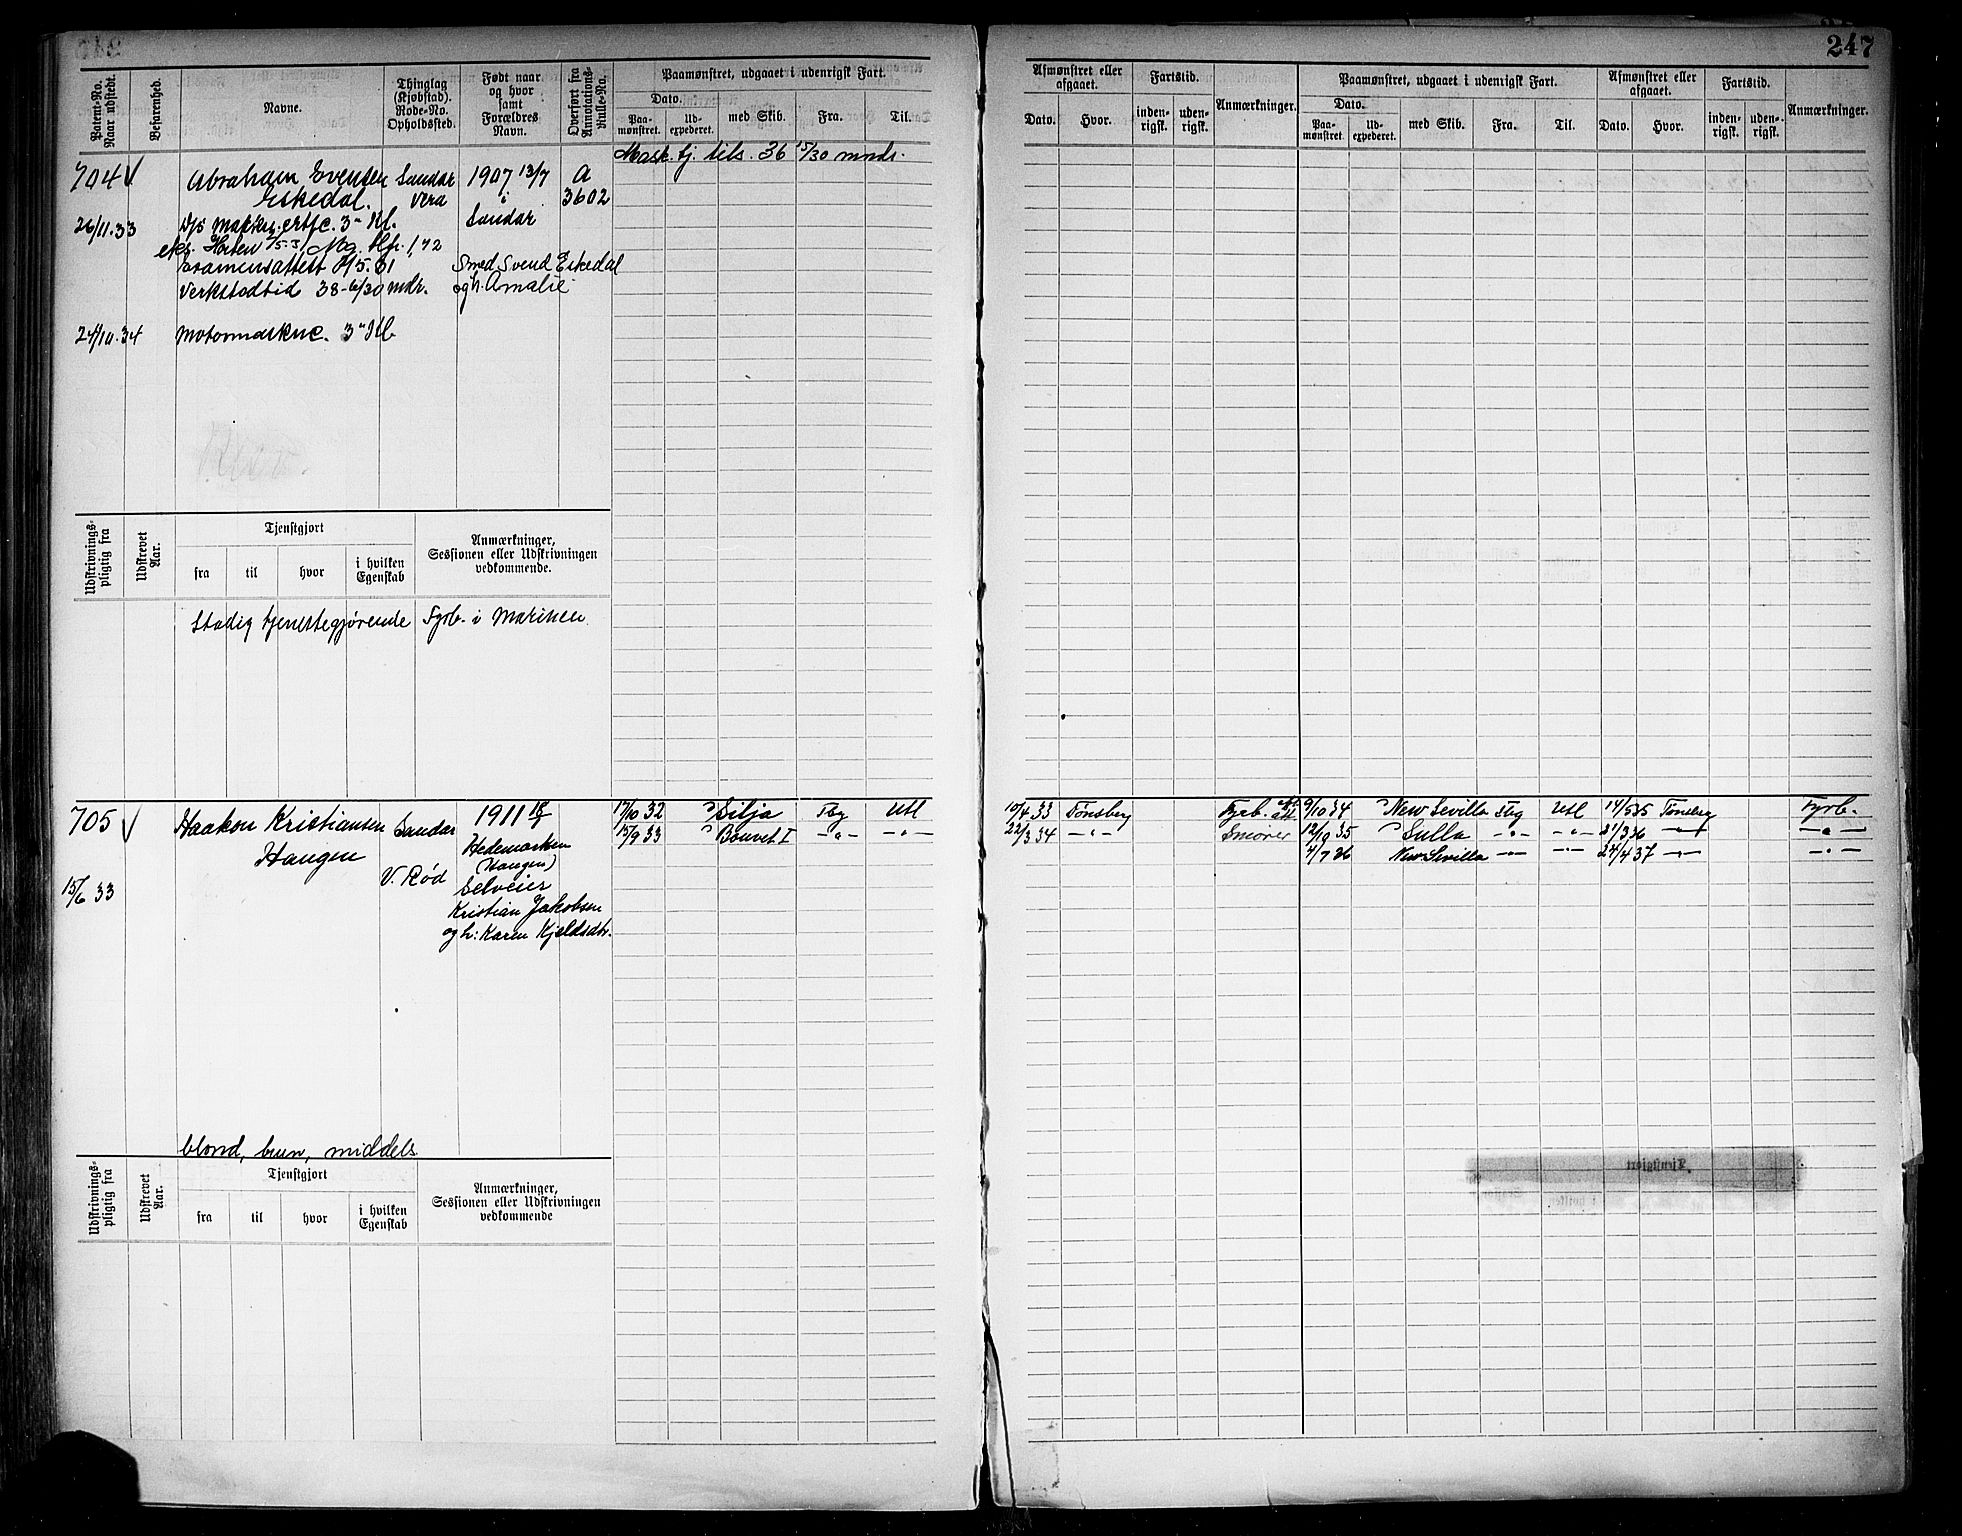 247
Patent-No. Naar udstedt.
Befarenhed.
Navne.
Thinglag (Kjøbstad). Rode-No. Opholdssted.
Født naar og hvor samt Forældres Navn.
Overført fra Annotations-Rulle-No.
Paamønstret, udgaaet i udenrigsk Fart.
Dato.
Paa-mønstret.
Ud-expederet.
med Skib.
Fra.
Til.
Afmønstret eller afgaaet.
Dato.
Hvor.
Fartstid.
inden-rigsk.
uden-rigsk.
Anmærkninger.
Paamønstret, udgaaet i udenrigsk Fart.
Dato.
Paa-mønstret.
Ud-expederet.
med Skib.
Fra.
Til.
Afmønstret eller afgaaet.
Dato.
Hvor.
Fartstid.
inden-rigsk.
uden-rigsk.
Anmærkninger.
Mask. tj. tils. 36 15/30 mndr.
704 Abraham Evensen Sandar 1907 13/7 A
Eskedal. Vera 3602
26/11.33 D/s maskin. ertfc. 3" Kl. Sandar
Horten
Examensattest 5.31 Smed Svend Eskedal
Verkstedtid 38-6/30 mdr. og h. Amalie
24/10.34 Motormaskne. 3" Kl.
Udskrivnings-pligtig fra
Udskrevet Aar.
Tjenstgjort
fra
til
hvor
i hvilken Egenskab
Anmærkninger, Sessionen eller Udskrivningen vedkommende.
Stadig tjenestegjørende Fyrb. i Marinen
705 Haakon Kristiansen Sandar 1911 18/7 17/10 32 Silja Tbg Utl 10/4 33 Tønsberg Fyrb. 9/10 34 New Sevilla Tbg Utl 14/5 35 Tønsberg Fyrb.
Haugen Hedemarken 15/9 33 Bouvet I -"- -"- 22/3 34 -"- Smører 12/10 35 Sulla -"- -"- 21/3 36 -"- -"-
(Haugen) 4/7 36 New Sevilla -"- -"- 24/4 37 -"- -"-
15/6 33 V. Rød Selveier
Kristian Jakobsen
og h: Karen Kjeldsdtr.
blond, brun, middels
Udskrivnings-pligtig fra
Udskrevet Aar.
Tjenstgjort
fra
til
hvor
i hvilken Egenskab
Anmærkninger, Sessionen eller Udskrivningen vedkommende